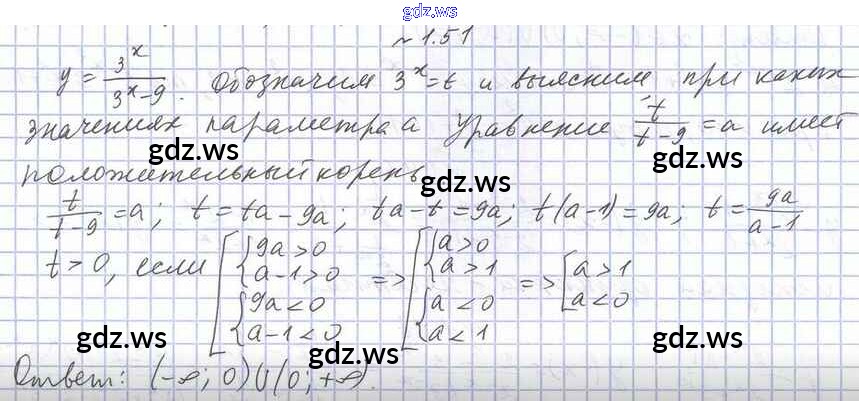 gdz.ws
~ 1.51
y = 3^x / (3^x - 9). Обозначим 3^x = t и выясним при каких
значениях параметра а Уравнение t / (t - 9) = a имеет
gdz.ws
положительный корень
gdz.ws
gdz.ws
t / (t - 9) = a; t = ta - 9a; ta - t = 9a; t(a - 1) = 9a; t = 9a / (a - 1)
t > 0, если [ { 9a > 0 a - 1 > 0 { 9a < 0 a - 1 < 0 => [ { a > 0 a > 1 { a < 0 a < 1 => [ a > 1 a < 0
gdz.ws
gdz.ws
gdz.ws
gdz.ws
Ответ: (-∞; 0) ∪ (0; +∞).